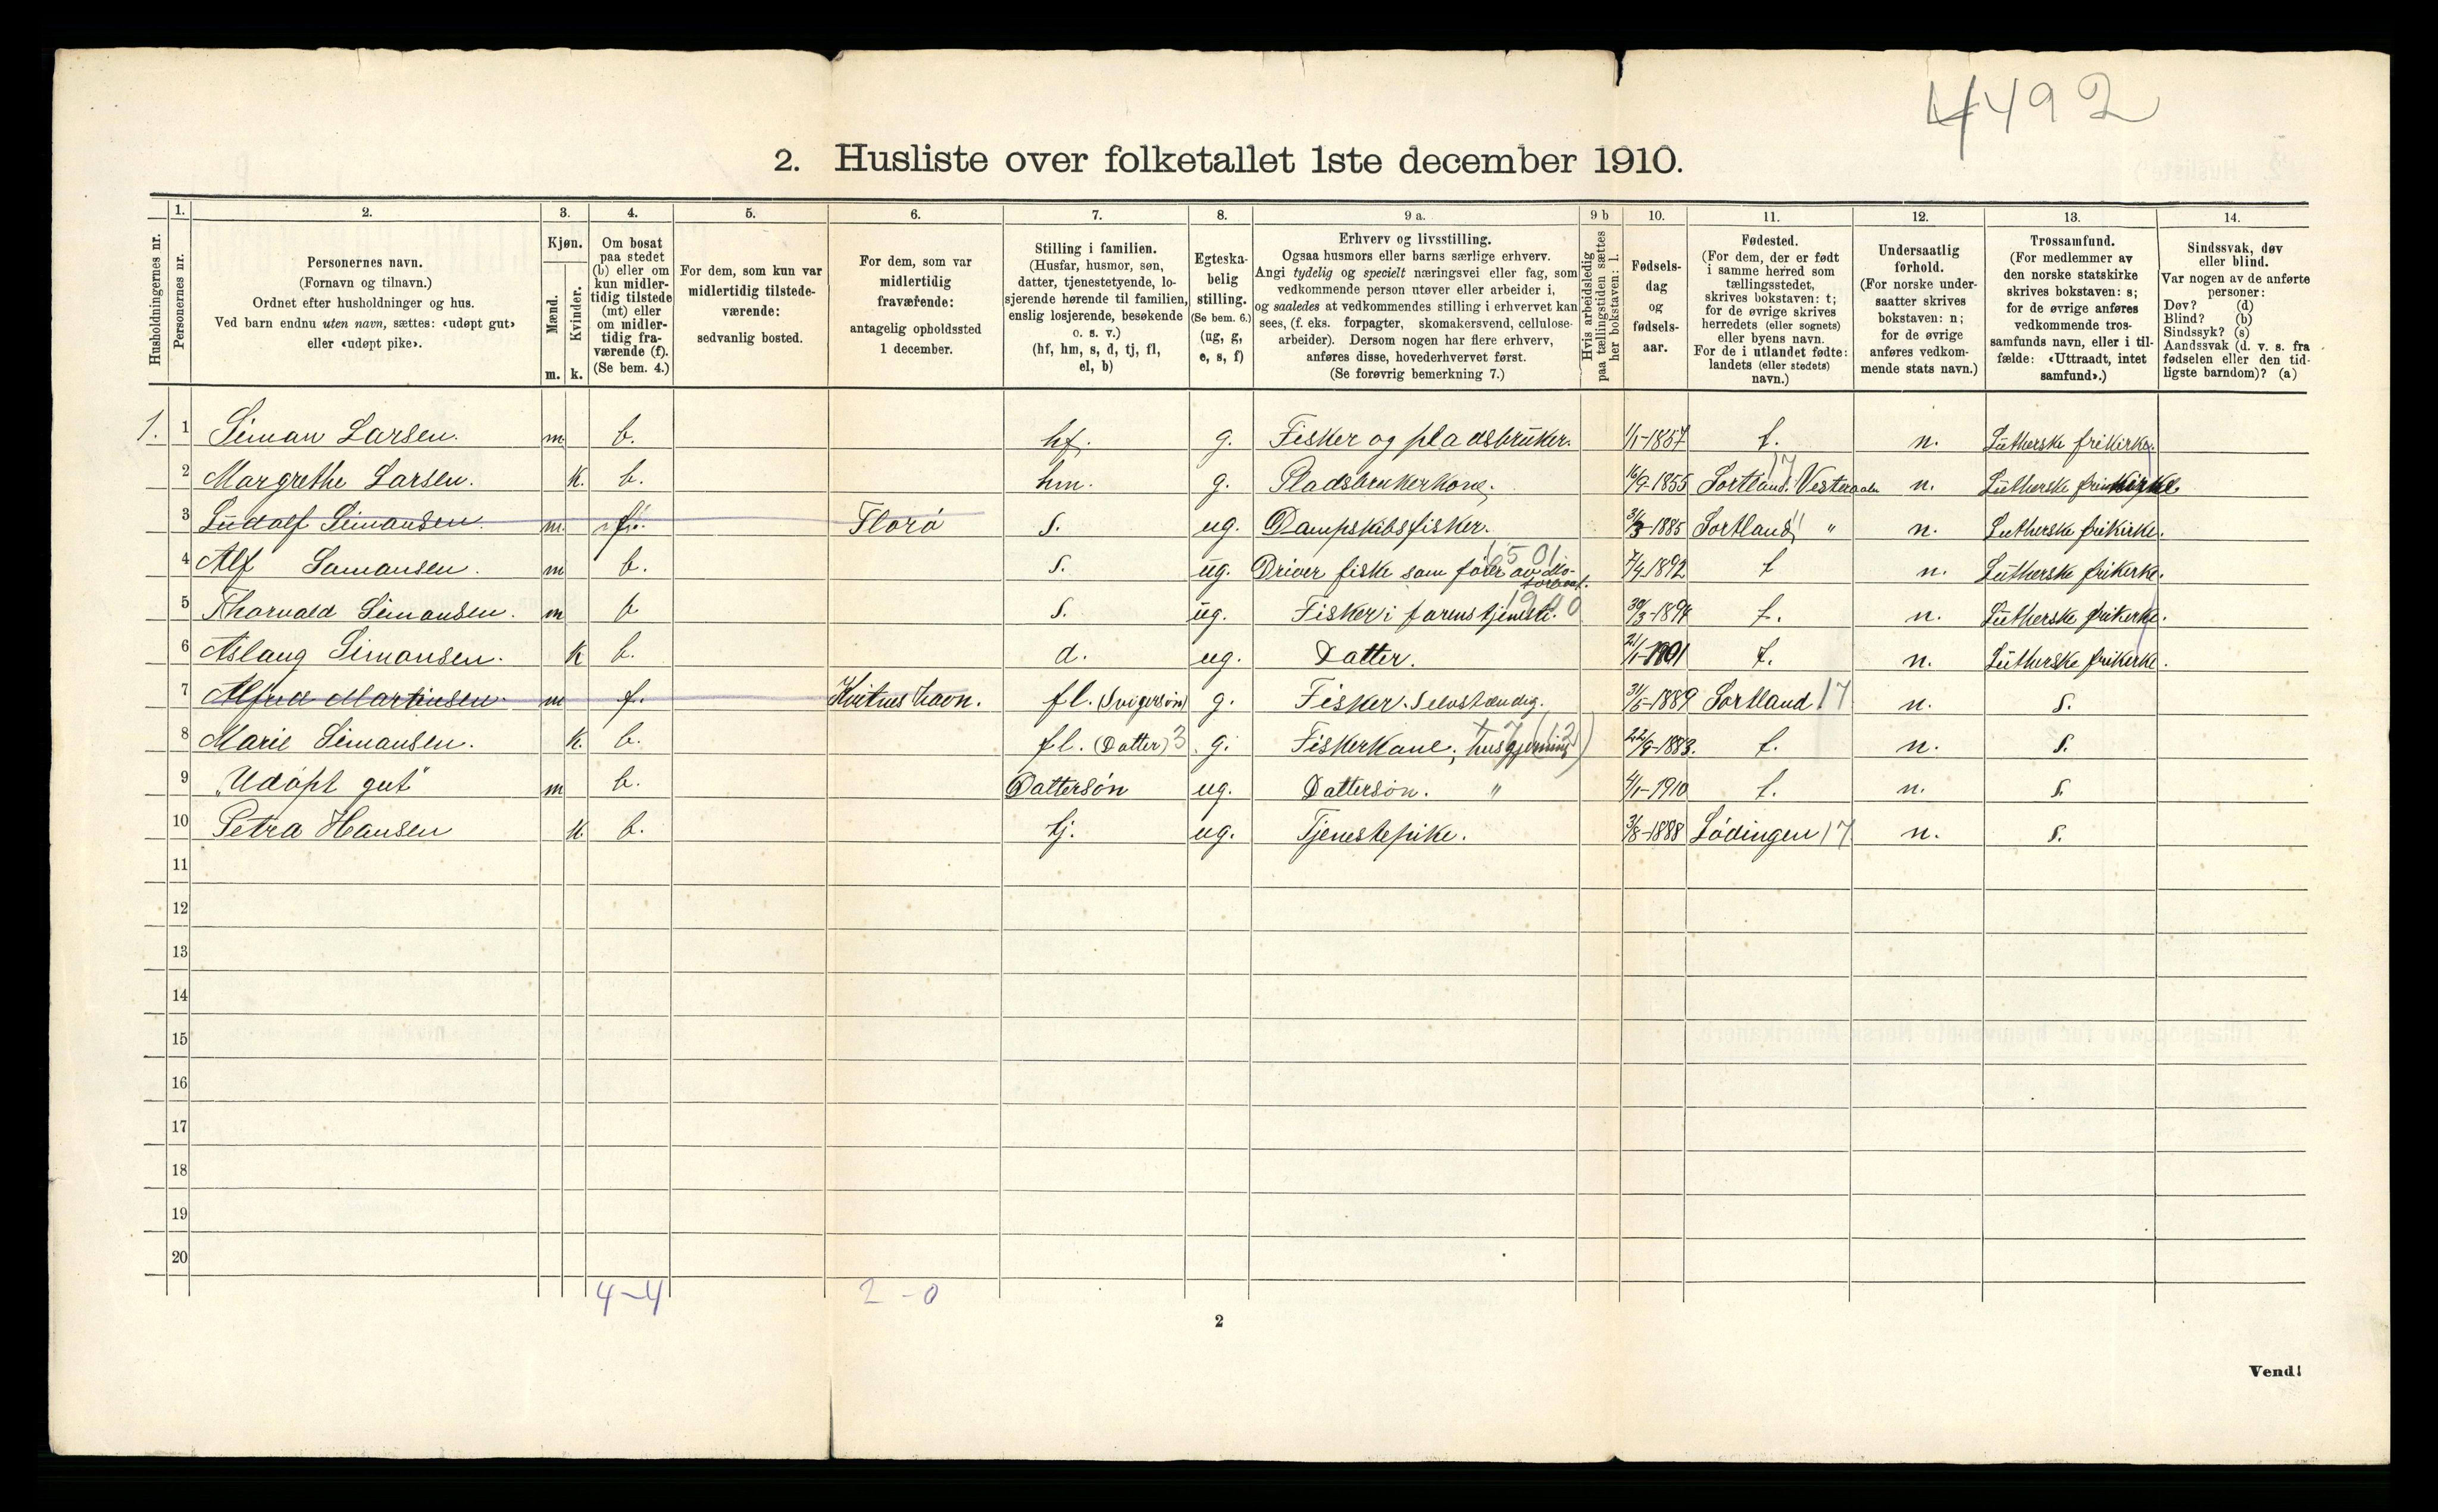 4492
2. Husliste over folketallet 1ste december 1910.
Husholdningernes nr.
1.
Personernes nr.
2.
Personernes navn.
(Fornavn og tilnavn.)
Ordnet efter husholdninger og hus.
Ved barn endnu uten navn, sættes: «udøpt gut»
eller «udøpt pike».
3.
Kjøn.
Mænd.
Kvinder.
m. k.
4.
Om bosat
paa stedet
(b) eller om
kun midler-
tidig tilstede
(mt) eller
om midler-
tidig fra-
værende (f).
(Se bem. 4.)
5.
For dem, som kun var
midlertidig tilstede-
værende:
sedvanlig bosted.
6.
For dem, som var
midlertidig
fraværende:
antagelig opholdssted
1 december.
7.
Stilling i familien.
(Husfar, husmor, søn,
datter, tjenestetyende, lo-
sjerende hørende til familien,
enslig losjerende, besøkende
o. s. v.)
(hf, hm, s, d, tj, fl,
el, b)
8.
Egteska-
belig
stilling.
(Se bem. 6.)
(ug, g,
e, s, f)
9 a.
Erhverv og livsstilling.
Ogsaa husmors eller barns særlige erhverv.
Angi tydelig og specielt næringsvei eller fag, som
vedkommende person utøver eller arbeider i,
og saaledes at vedkommendes stilling i erhvervet kan
sees, (f. eks. forpagter, skomakersvend, cellulose-
arbeider). Dersom nogen har flere erhverv,
anføres disse, hovederhvervet først.
(Se forøvrig bemerkning 7.)
9 b
Hvis arbeidsledig
paa tællingstiden sættes
her bokstaven: l.
10.
Fødsels-
dag
og
fødsels-
aar.
11.
Fødested.
(For dem, der er født
i samme herred som
tællingsstedet,
skrives bokstaven: t;
for de øvrige skrives
herredets (eller sognets)
eller byens navn.
For de i utlandet fødte:
landets (eller stedets)
navn.)
12.
Undersaatlig
forhold.
(For norske under-
saatter skrives
bokstaven: n;
for de øvrige
anføres vedkom-
mende stats navn.)
13.
Trossamfund.
(For medlemmer av
den norske statskirke
skrives bokstaven: s;
for de øvrige anføres
vedkommende tros-
samfunds navn, eller i til-
fælde: «Uttraadt, intet
samfund».)
14.
Sindssvak, døv
eller blind.
Var nogen av de anførte
personer:
Døv? (d)
Blind? (b)
Sindssyk? (s)
Aandssvak (d. v. s. fra
fødselen eller den tid-
ligste barndom)? (a)
1. 1 Siman Larsen. m b. hf. g. Fisker og pladsbruker. 1/1-1857 t. n. Lutherske frikirke.
2 Margrethe Larsen. k. b. hm. g. Pladsbrukerkone. 16/9-1855 Sortland. Vesteraalen 17 n. Lutherske frikirke.
3 Ludolf Simonsen. m. f. Florø s. ug. Dampskibsfisker. 31/3-1885 Sortland " n. Lutherske frikirke.
4 Alf Samansen. m b. s. ug. Driver fiske som fører av Mo-
torbaat. 6501 7/4 1892 t n. Lutherske frikerke.
5 Thorvald Simonsen. m b s. ug. Fisker i farens tjeneste. 1900 30/3-1894 t. n. Lutherske frikerke.
6 Aslaug Simonsen. k b. d. ug. Datter. 21/1-1901 t. n. Lutherske frikerke.
7 Alfred Martinsen. m f. Kvitnes havn. fl. (Svigersøn) g. Fisker. Selvstændig. 31/5-1889 Sortland 17 n. s.
8 Marie Simonsen. k. b. fl. (Datter) 3 g. Fiskerkone, husgjerning 22/9-1883. t. n. s.
9 "Udøpt gut" m b. Dattersøn ug. Dattersøn. " 4/1-1910 t. n. s.
10 Petra Hansen k b. tj. ug. Tjenestepike. 3/8-1888 Lødingen 17 n. s.
11
12
13
14
15
16
17
18
19
20
4-4 2-0
2
Vend!